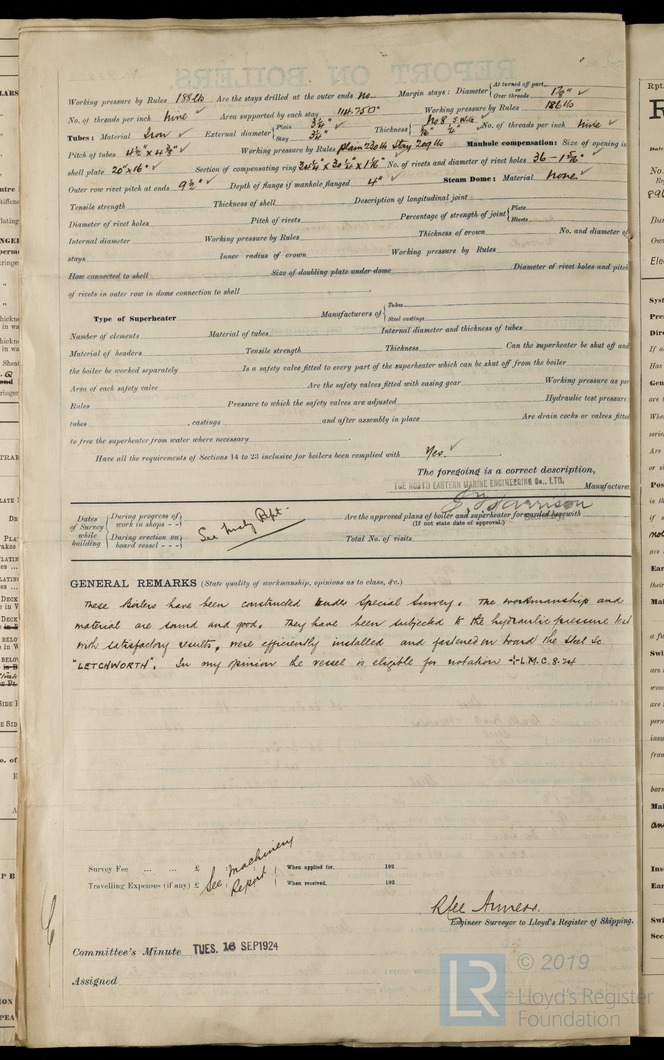 Working pressure by Rules 188 lb Are the stays drilled at the outer ends No. Margin stays: Diameter { At turned off part, Over threads 1 7/8" ✓
No. of threads per inch Nine ✓ Area supported by each stay Working pressure by Rules 186 lb
Tubes: Material Iron ✓ External diameter { Plain 3 1/4" Stay 3 1/4" ✓ Thickness { No 8 S.W.G. No. of threads per inch Nine ✓
Pitch of tubes Working pressure by Rules Plain 220 lb Stay 209 lb Manhole compensation: Size of opening in
shell plate 20" x 16" ✓ Section of compensating ring No. of rivets and diameter of rivet holes
Outer row rivet pitch at ends 9 1/2" ✓ Depth of flange if manhole flanged 4" ✓ Steam Dome: Material None ✓
Tensile strength Thickness of shell Description of longitudinal joint
Diameter of rivet holes Pitch of rivets Percentage of strength of joint { Plate Rivets
Internal diameter Working pressure by Rules Thickness of crown No. and diameter of
stays Inner radius of crown Working pressure by Rules
How connected to shell Size of doubling plate under dome Diameter of rivet holes and pitch
of rivets in outer row in dome connection to shell
Type of Superheater Manufacturers of { Tubes Steel castings
Number of elements Material of tubes Internal diameter and thickness of tubes
Material of headers Tensile strength Thickness Can the superheater be shut off and
the boiler be worked separately Is a safety valve fitted to every part of the superheater which can be shut off from the boiler
Area of each safety valve Are the safety valves fitted with easing gear Working pressure as per
Rules Pressure to which the safety valves are adjusted Hydraulic test pressure:
tubes , castings and after assembly in place Are drain cocks or valves fitted
to free the superheater from water where necessary
Have all the requirements of Sections 14 to 23 inclusive for boilers been complied with Yes. ✓
The foregoing is a correct description,
THE NORTH EASTERN MARINE ENGINEERING Co., LTD. Manufacturer.
Dates of Survey while building { During progress of work in shops - - During erection on board vessel - - - } See Mchy Rpt.
Are the approved plans of boiler and superheater forwarded herewith
(If not state date of approval.)
Total No. of visits
GENERAL REMARKS (State quality of workmanship, opinions as to class, &c.)
These Boilers have been constructed under Special Survey. The workmanship and
material are sound and good. They have been subjected to the hydraulic pressure test
with satisfactory results, were efficiently installed and fastened on board the Steel Sc.
"LETCHWORTH". In my opinion the vessel is eligible for notation + L.M.C. 8.24
Survey Fee ... ... £ See Machinery Report When applied for, 192
Travelling Expenses (if any) £ When received, 192
Engineer Surveyor to Lloyd's Register of Shipping.
Committee's Minute TUES. 16 SEP 1924
Assigned
LR © 2019
Lloyd's Register
Foundation